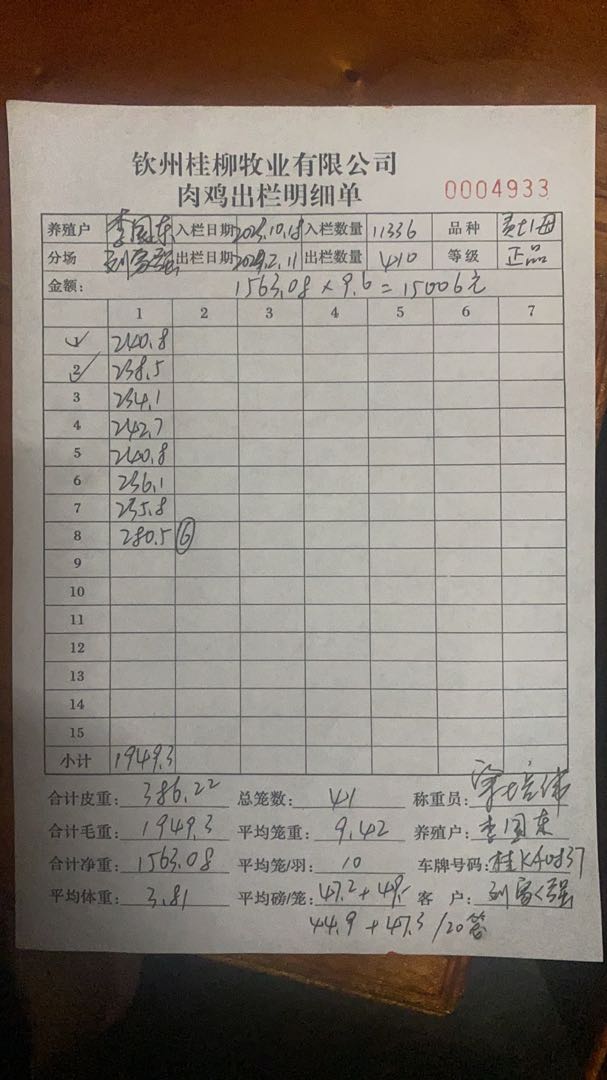 钦州桂柳牧业有限公司
肉鸡出栏明细单
0004933
养殖户 李国东 入栏日期 2023.10.18 入栏数量 11336 品种
分场 出栏日期 出栏数量 410 等级 正品
金额: 1563.08 × 9.6 = 15006元
1 2 3 4 5 6 7
1 240.8
2 238.5
3 234.1
4 242.7
5 240.8
6 236.1
7 235.8
8 280.5 ⑥
9
10
11
12
13
14
15
小计 1949.3
合计皮重: 386.22 总笼数: 41 称重员:
合计毛重: 1949.3 平均笼重: 9.42 养殖户: 李国东
合计净重: 1563.08 平均笼/羽: 10 车牌号码:
平均体重: 3.81 平均磅/笼: 47.2 + 客户:
44.9 + 47.3 /20